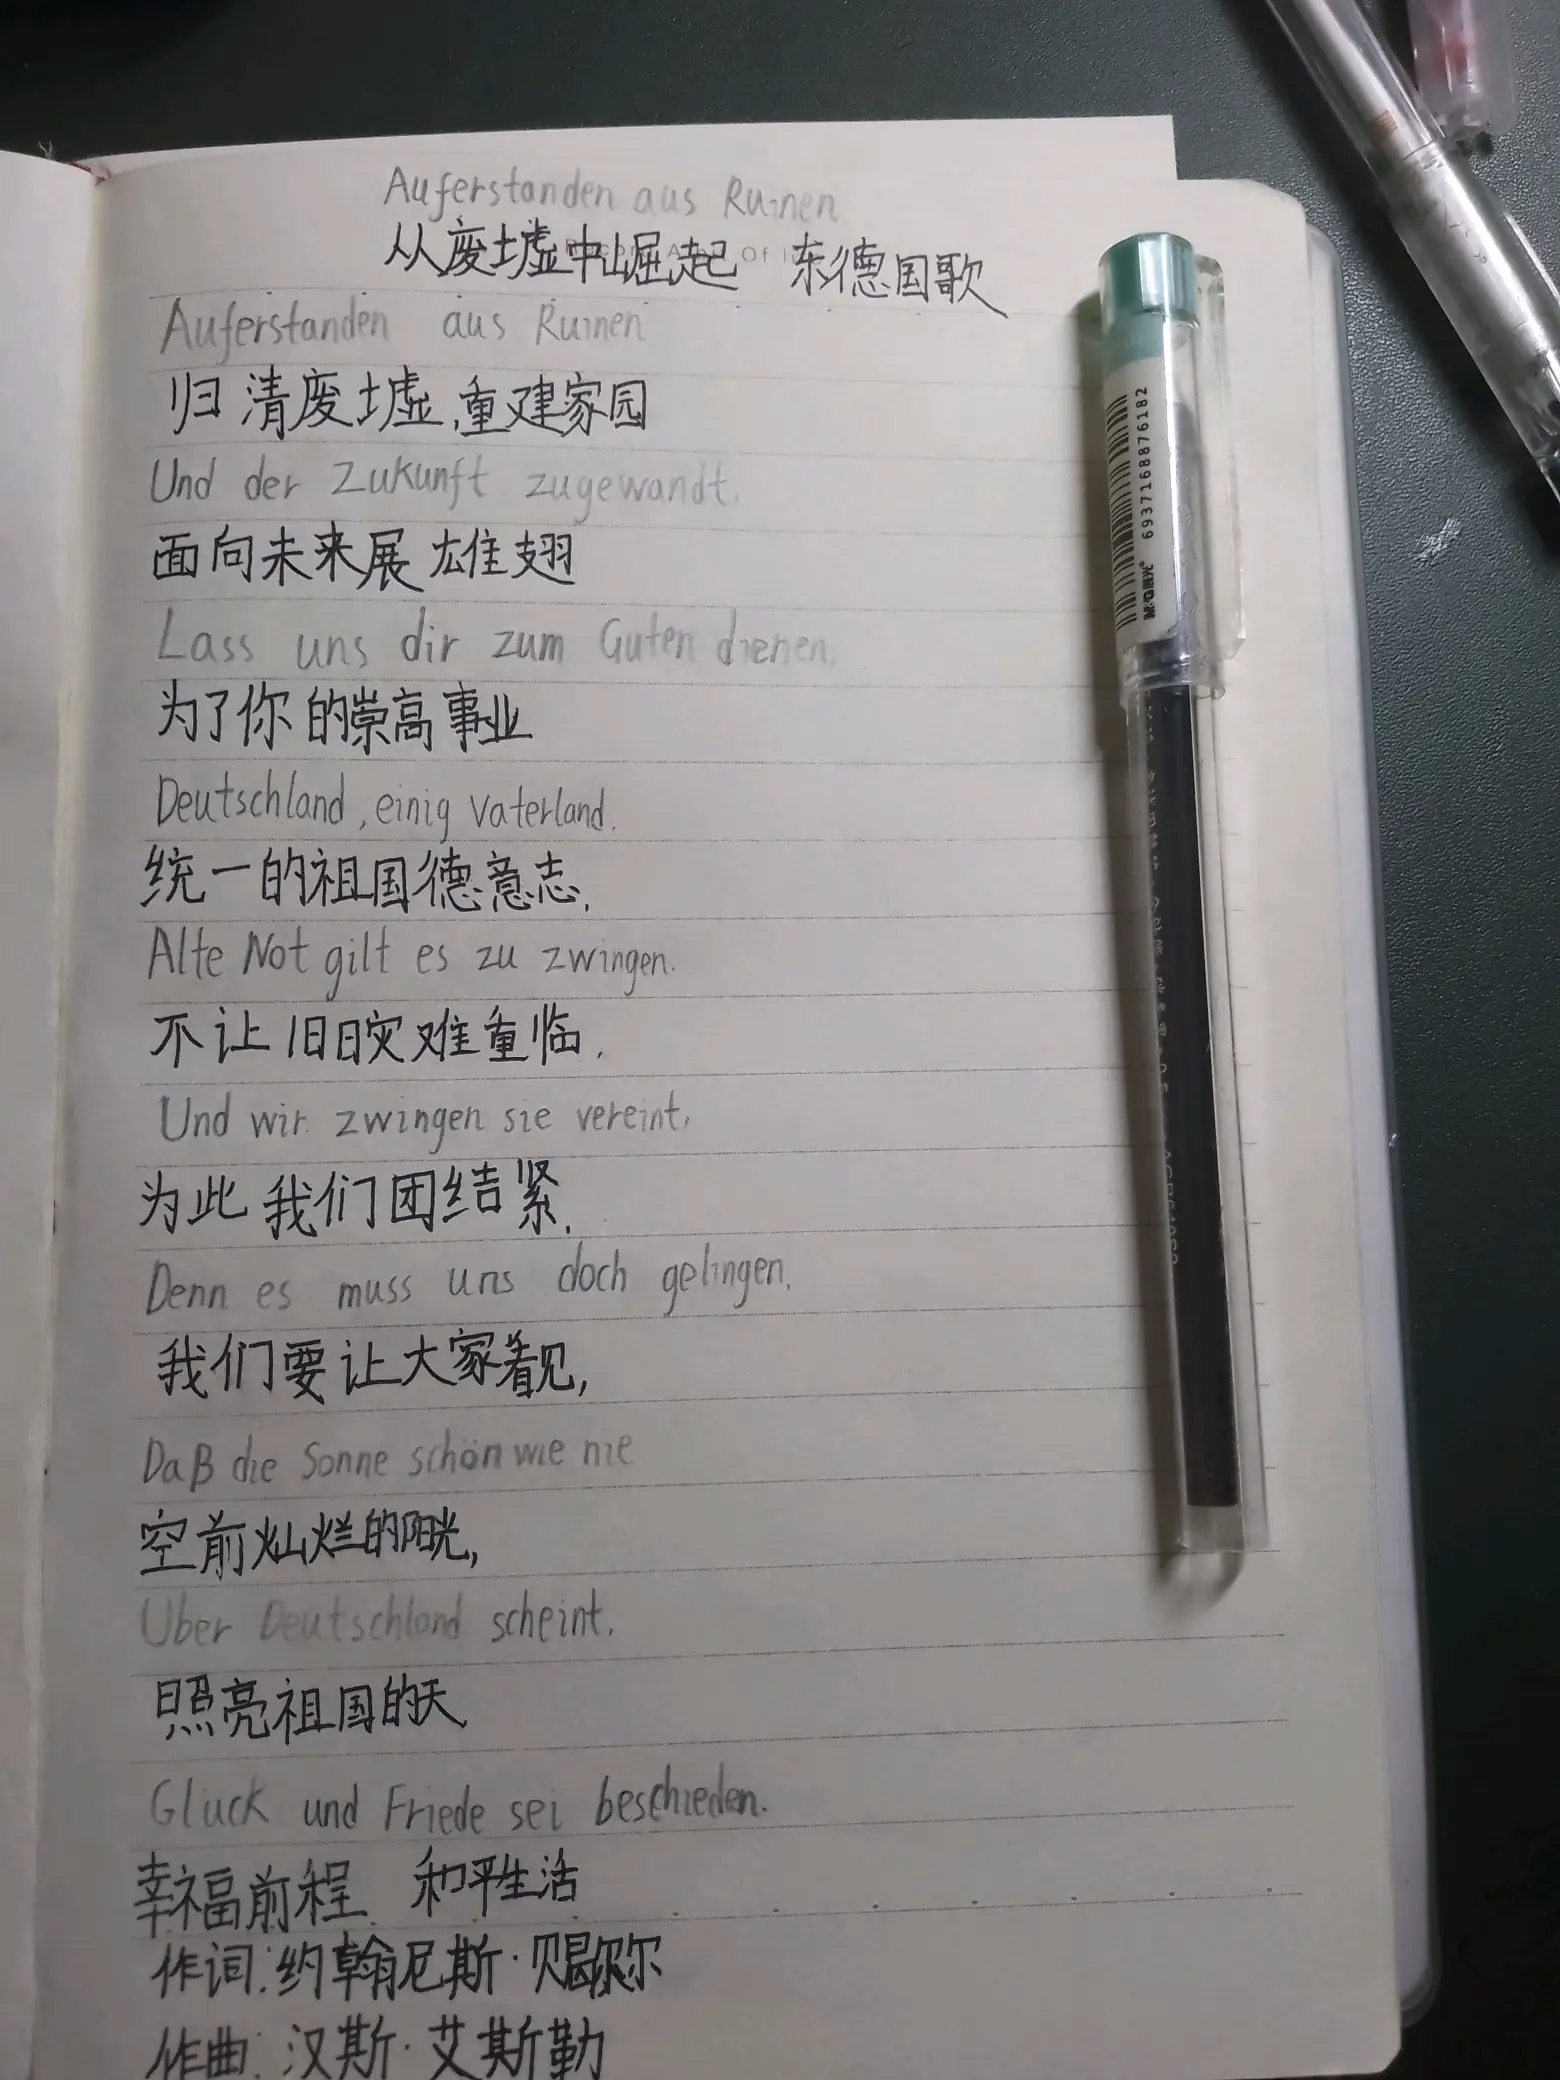 Auferstanden aus Ruinen
从废墟中崛起 东德国歌
Auferstanden aus Ruinen
归清废墟,重建家园
Und der Zukunft zugewandt.
面向未来展雄翅
Lass uns dir zum Guten dienen.
为了你的崇高事业
Deutschland, einig vaterland.
统一的祖国德意志.
Alte Not gilt es zu zwingen.
不让旧日灾难重临.
Und wir zwingen sie vereint.
为此我们团结紧.
Denn es muss uns doch gelingen.
我们要让大家看见,
Daß die Sonne schön wie nie
空前灿烂的阳光,
Uber Deutschland scheint.
照亮祖国的天
Gluck und Friede sei beschieden.
幸福前程 和平生活
作词:约翰尼斯·贝歇尔
作曲:汉斯·艾斯勒
6937168876182
M&G晨光